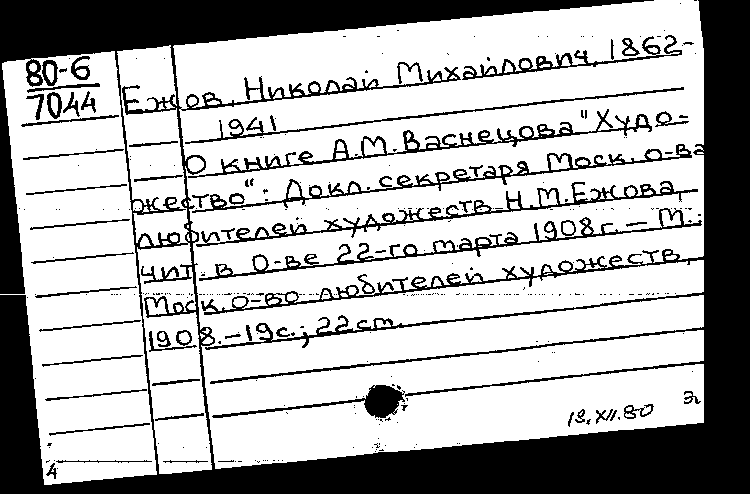 80-6
7044
Ежов, Николай Михайлович, 1862-
1941
О книге А.М. Васнецова "Худо-
жество": Докл. секретаря Моск. о-ва
любителей художеств Н.М. Ежова,
чит. в О-ве 22-го марта 1908 г. — М.:
Моск. о-во любителей художеств,
1908. – 19 с.; 22 см.
.XII.80
4